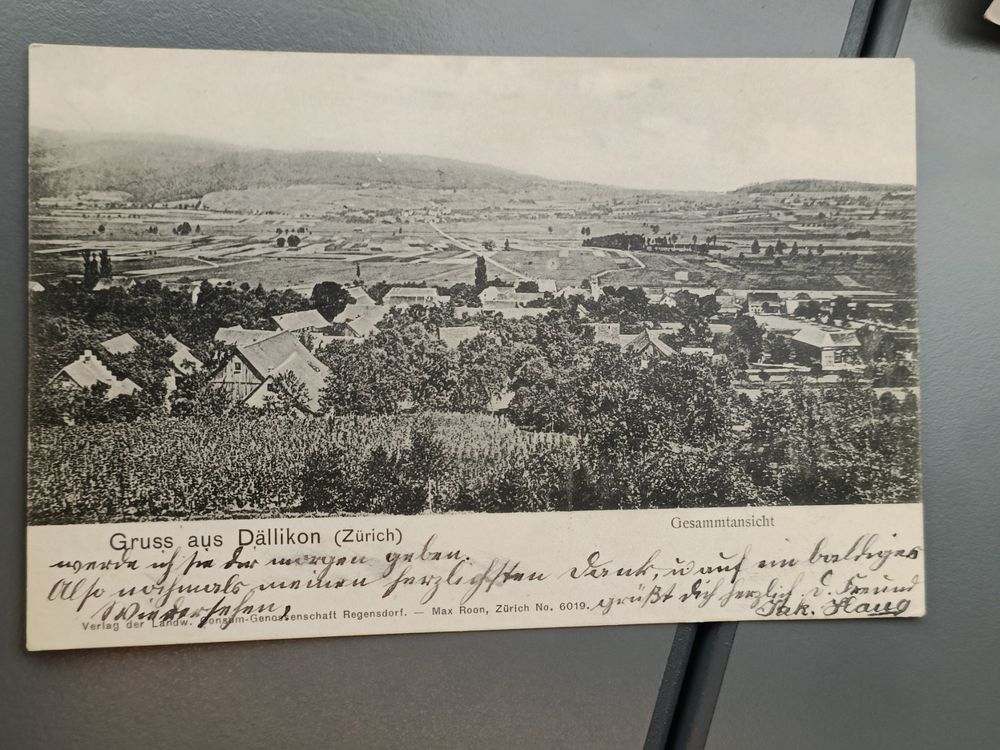 Gesammtansicht
Gruss aus Dällikon (Zürich)
werde ich sie dir morgen geben.
Also nochmals meinen herzlichsten Dank, u auf ein baldiges
Wiedersehen, grüßt dich herzlich d. Freund
Jak. Haug
Verlag der Landw. Consum-Genossenschaft Regensdorf. — Max Roon, Zürich No. 6019.